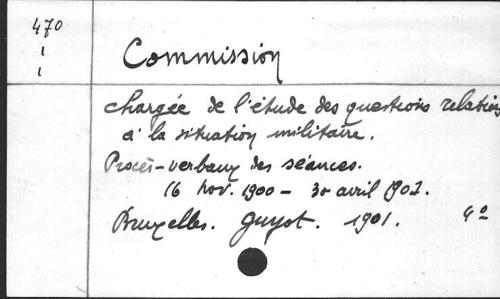 470
Commission
chargée de l'étude des questions relatives
à la situation militaire.
Procès-verbaux des séances.
16 nov. 1900 - 30 avril 1901.
Bruxelles. Guyot. 1901. 4°